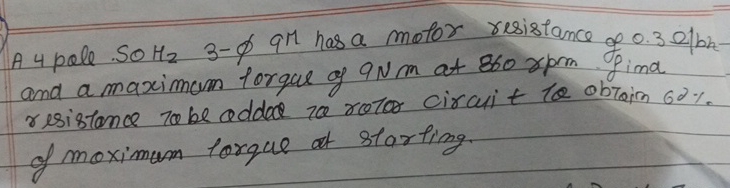 A 4 pole 50 Hz 3-ϕ IM has a motor resistance of 0.3 Ω/ph
and a maximum torque of 9Nm at 860 rpm. Find
resistance to be added to rotor circuit to obtain 60%
of moximum torque at starting.